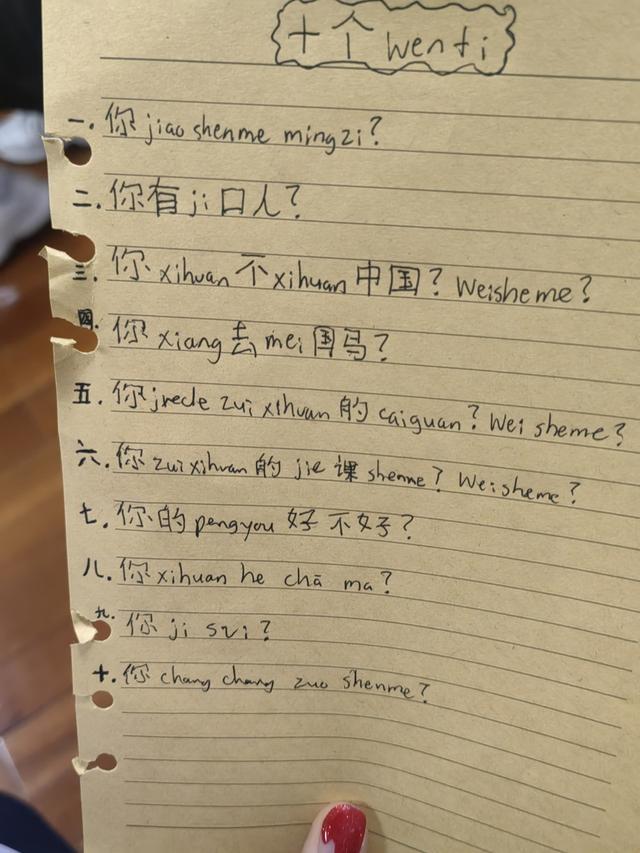 十个 wenti
一. 你 jiao shenme mingzi?
二. 你有 ji 口人?
三. 你 xihuan 不 xihuan 中国? Weisheme?
四. 你 xiang 去 mei 国马?
五. 你 juede zui xihuan 的 caiguan? Wei sheme?
六. 你 zui xihuan 的 jie 课 shenme? Weisheme?
七. 你的 pengyou 好不好?
八. 你 xihuan he chā ma?
九. 你 ji sui?
十. 你 chang chang zuo shenme?